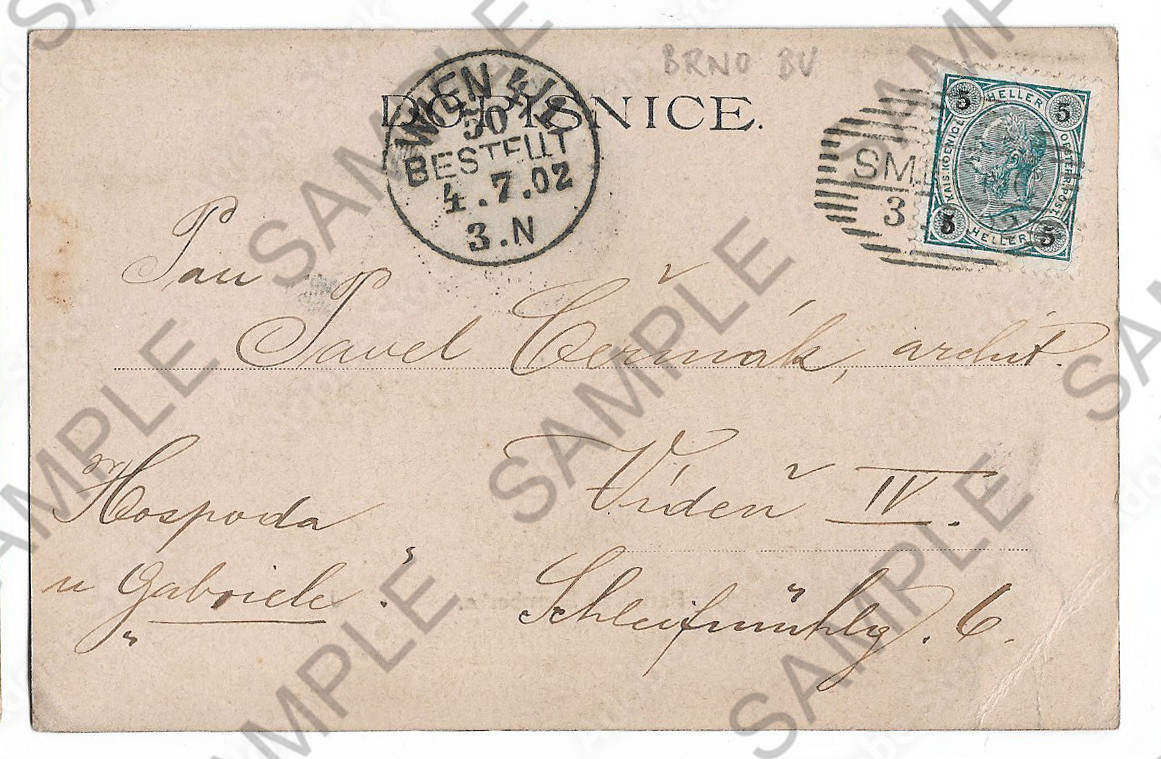 BRNO BV
DOPISNICE.
WIEN 4/1
50
BESTELLT
4.7.02
3.N
5 HELLER 5
KAIS. KOENIGL. OESTERR. POST
5 HELLER 5
SM
3
Pan
Pavel Čermák, archit.
Vídeň IV.
Schleifmühlg. 6.
Hospoda
u „Gabriele“.
SAMPLE
SAMPLE
SAMPLE
SAMPLE
SAMPLE
SAMPLE
SAMPLE
SAMPLE
SAMPLE
SAMPLE